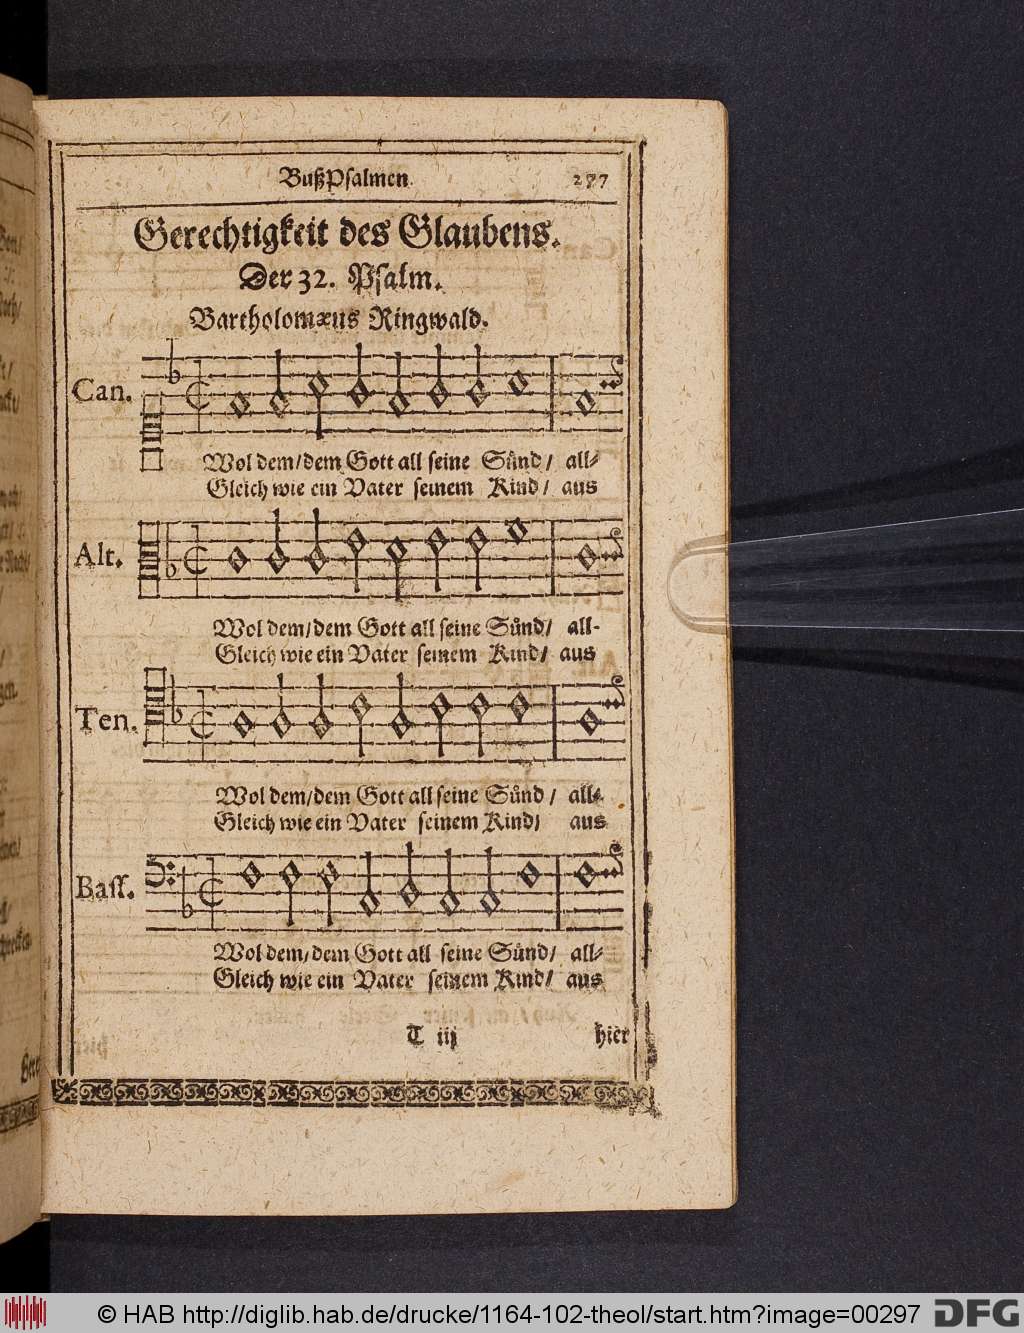 BußPsalmen. 277
Gerechtigkeit des Glaubens.
Der 32. Psalm.
Bartholomæus Ringwald.
Can.
Wol dem/dem Gott all seine Sünd/ all-
Gleich wie ein Vater seinem Kind/ aus
Alt.
Wol dem/dem Gott all seine Sünd/ all-
Gleich wie ein Vater seinem Kind/ aus
Ten.
Wol dem/dem Gott all seine Sünd/ all-
Gleich wie ein Vater seinem Kind/ aus
Bass.
Wol dem/dem Gott all seine Sünd/ all-
Gleich wie ein Vater seinem Kind/ aus
T iij hier
© HAB http://diglib.hab.de/drucke/1164-102-theol/start.htm?image=00297 DFG